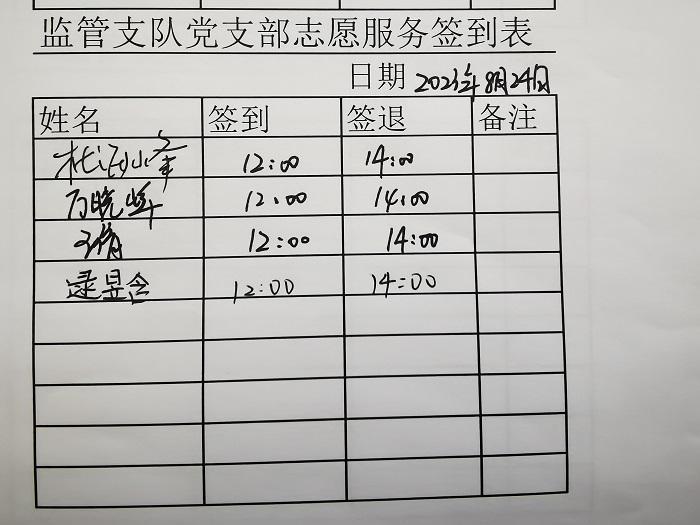 监管支队党支部志愿服务签到表
日期 2023年8月24日
姓名 签到 签退 备注
12:00 14:00
万晓峰 12:00 14:00
12:00 14:00
逯昱含 12:00 14:00